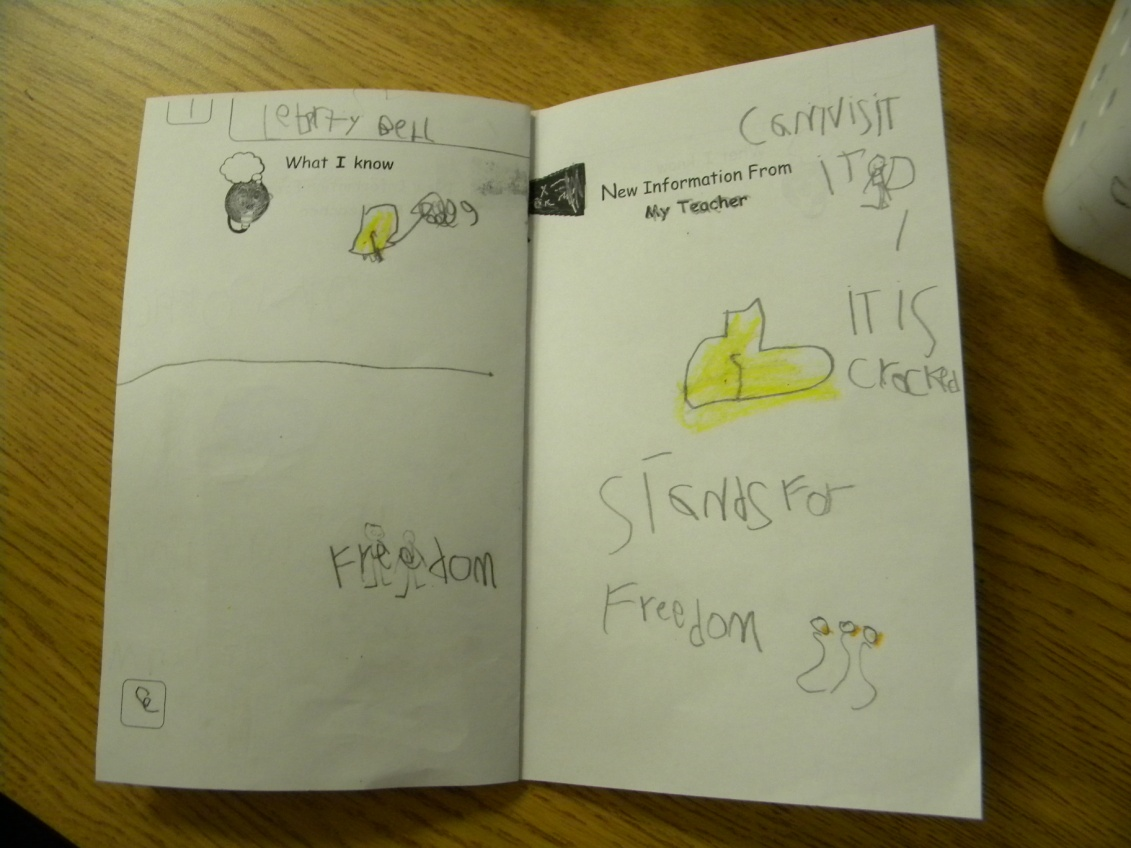 1
leberty Bell
What I know
Freedom
New Information From
My Teacher
Can Visit
IT
IT IS
cracked
STands For
Freedom